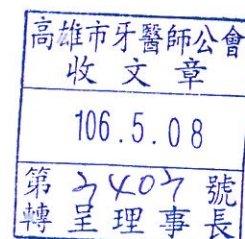 高雄市牙醫師公會
收文章
106.5.08
第 號
轉呈理事長